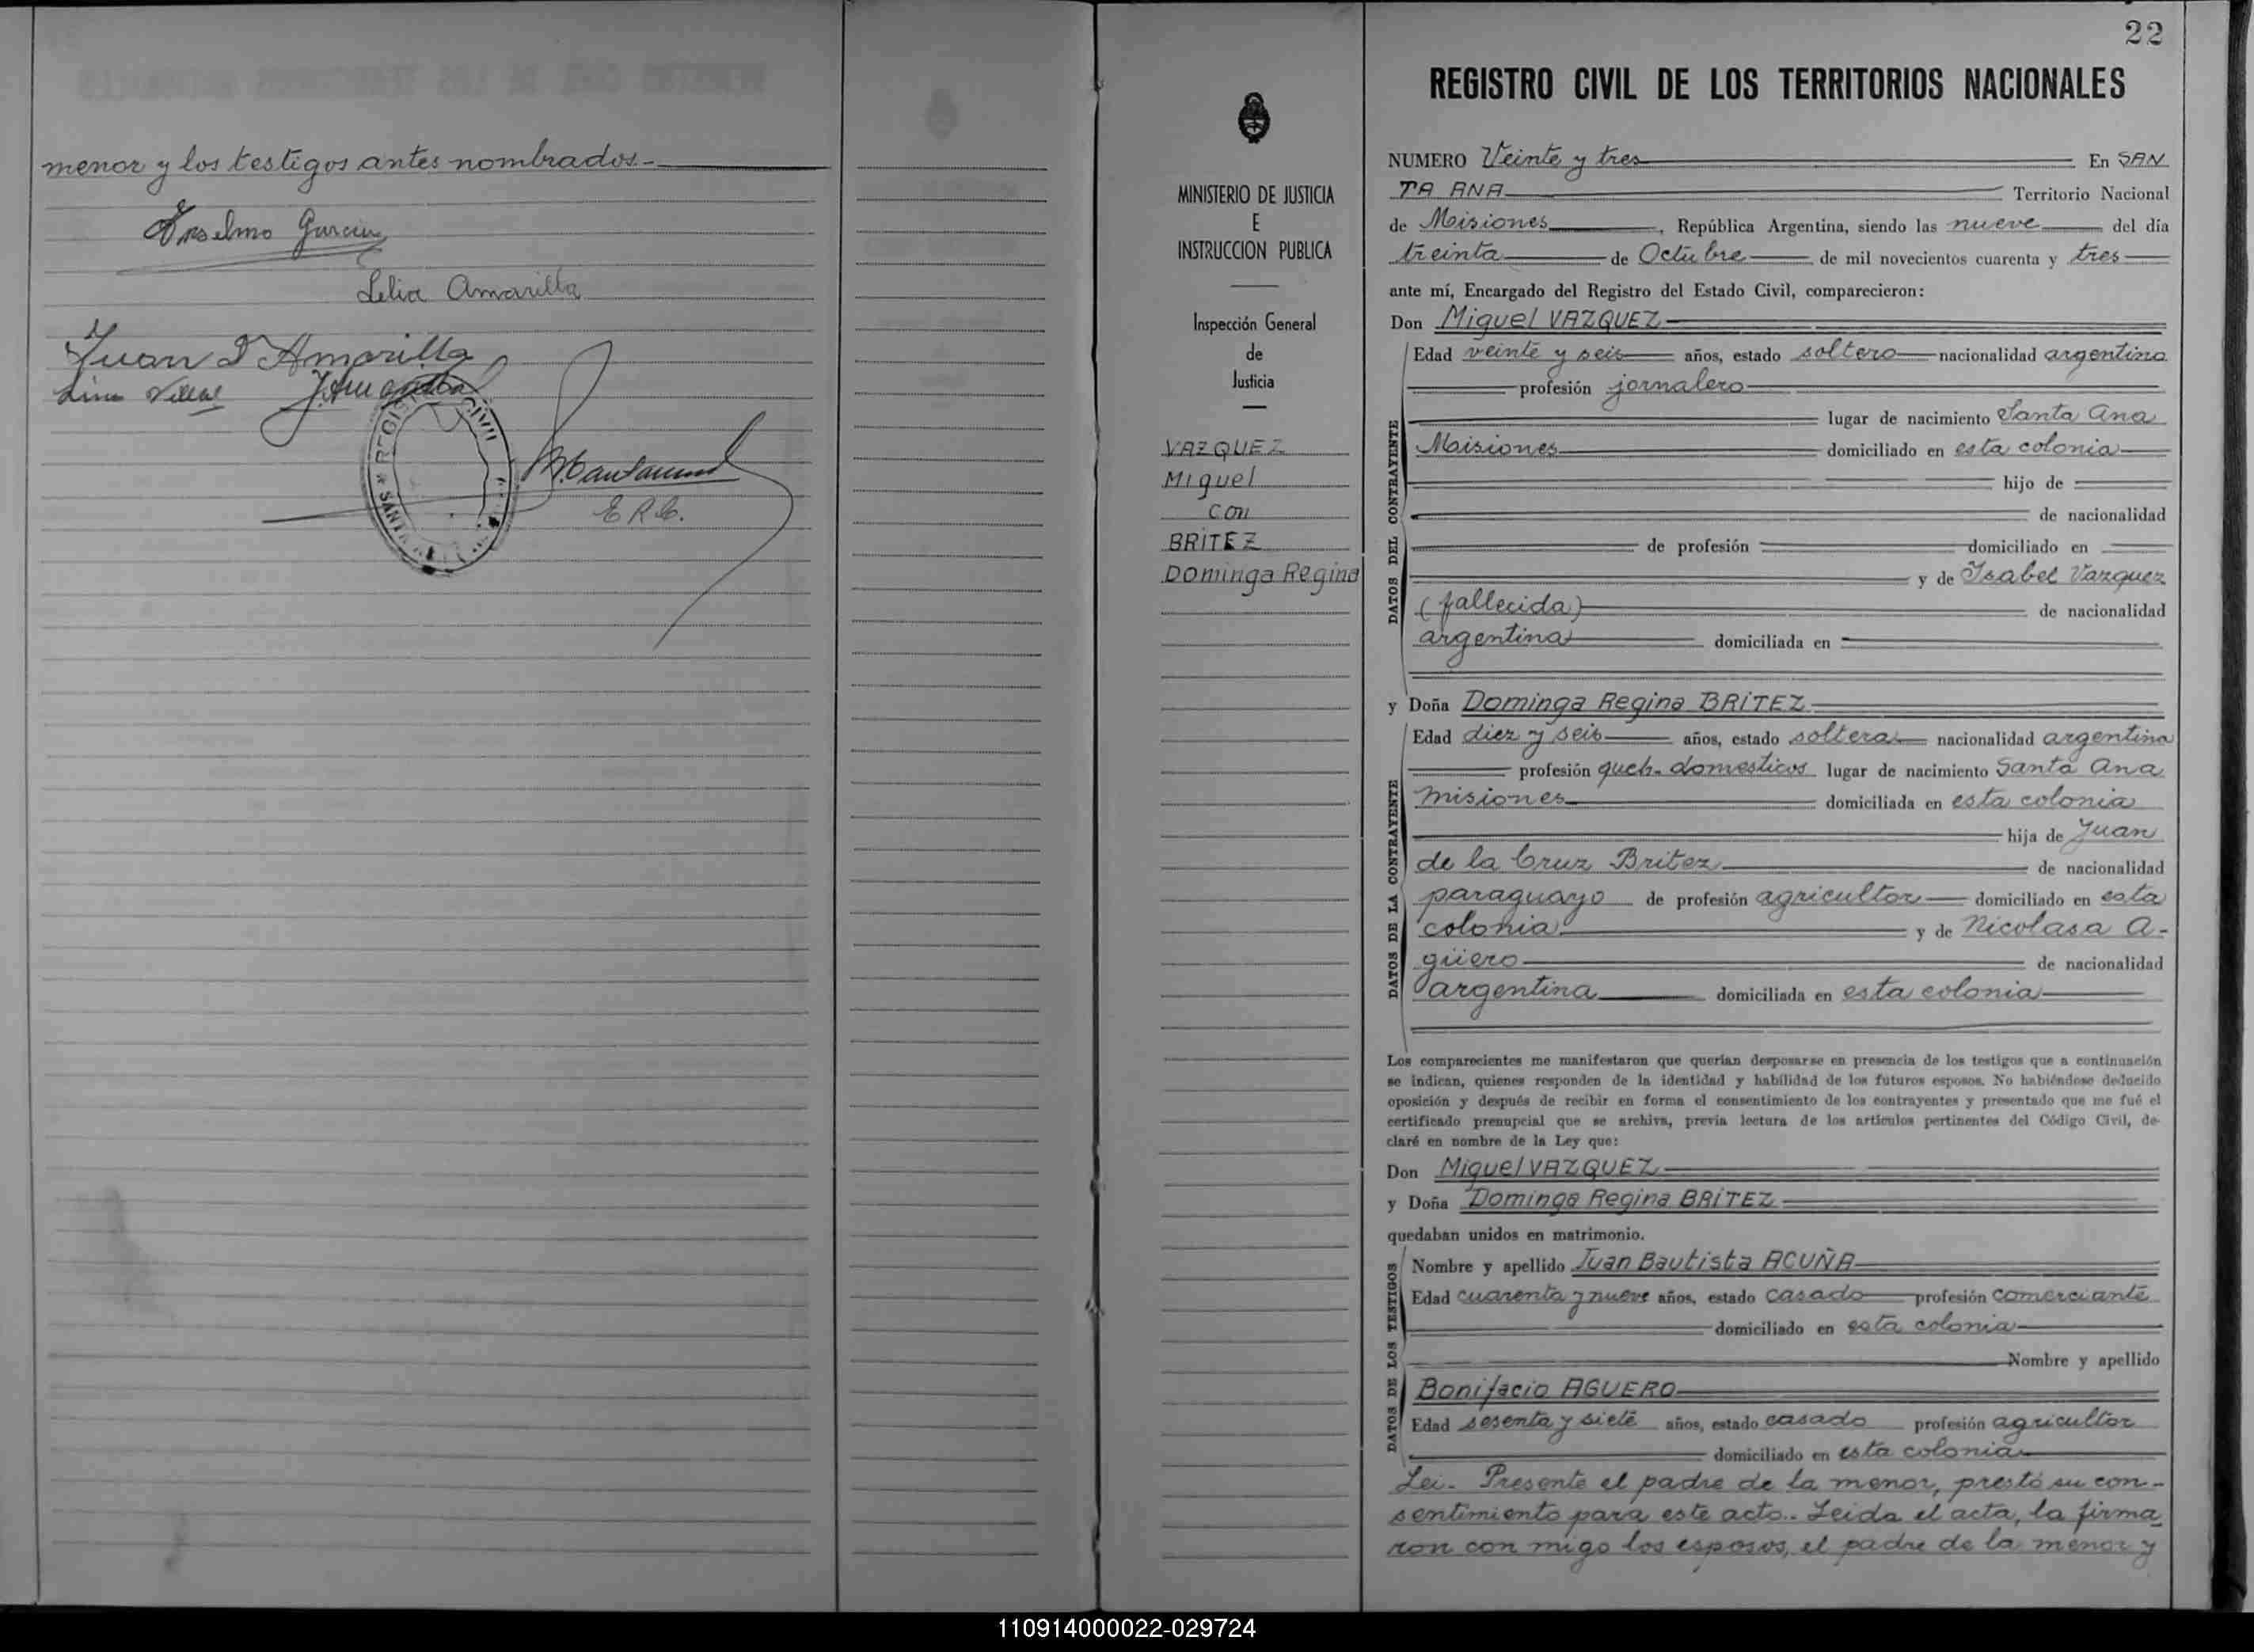 menor y los testigos antes nombrados.-
Anselmo Garcia
Lelia Amarilla
Juan D Amarilla
REGISTRO CIVIL
SANTA
E R C.
22
REGISTRO CIVIL DE LOS TERRITORIOS NACIONALES
MINISTERIO DE JUSTICIA
E
INSTRUCCION PUBLICA
Inspección General
de
Justicia
VAZQUEZ
Miguel
con
BRITEZ
Dominga Regina
NUMERO Veinte y tres En SAN
TA ANA Territorio Nacional
de Misiones, República Argentina, siendo las nueve del día
treinta de Octubre de mil novecientos cuarenta y tres
ante mí, Encargado del Registro del Estado Civil, comparecieron:
Don Miguel VAZQUEZ
DATOS DEL CONTRAYENTE
Edad veinte y seis años, estado soltero nacionalidad argentina
profesión jornalero
lugar de nacimiento Santa Ana
Misiones domiciliado en esta colonia
hijo de
de nacionalidad
de profesión domiciliado en
y de Isabel Vazquez
(fallecida) de nacionalidad
argentina domiciliada en
y Doña Dominga Regina BRITEZ
DATOS DE LA CONTRAYENTE
Edad diez y seis años, estado soltera nacionalidad argentina
profesión queh. domesticos lugar de nacimiento Santa Ana
Misiones domiciliada en esta colonia
hija de Juan
de la Cruz Britez de nacionalidad
paraguayo de profesión agricultor domiciliado en esta
colonia y de Nicolasa A-
güero de nacionalidad
argentina domiciliada en esta colonia
Los comparecientes me manifestaron que querían desposarse en presencia de los testigos que a continuación
se indican, quienes responden de la identidad y habilidad de los futuros esposos. No habiéndose deducido
oposición y después de recibir en forma el consentimiento de los contrayentes y presentado que me fué el
certificado prenupcial que se archiva, previa lectura de los artículos pertinentes del Código Civil, de-
claré en nombre de la Ley que:
Don Miguel VAZQUEZ
y Doña Dominga Regina BRITEZ
quedaban unidos en matrimonio.
DATOS DE LOS TESTIGOS
Nombre y apellido Juan Bautista ACUÑA
Edad cuarenta y nueve años, estado casado profesión comerciante
domiciliado en esta colonia
Nombre y apellido
Bonifacio AGUERO
Edad sesenta y siete años, estado casado profesión agricultor
domiciliado en esta colonia
Lei.- Presente el padre de la menor, prestó su con-
sentimiento para este acto.- Leida el acta, la firma
ron con migo los esposos, el padre de la menor y
110914000022-029724